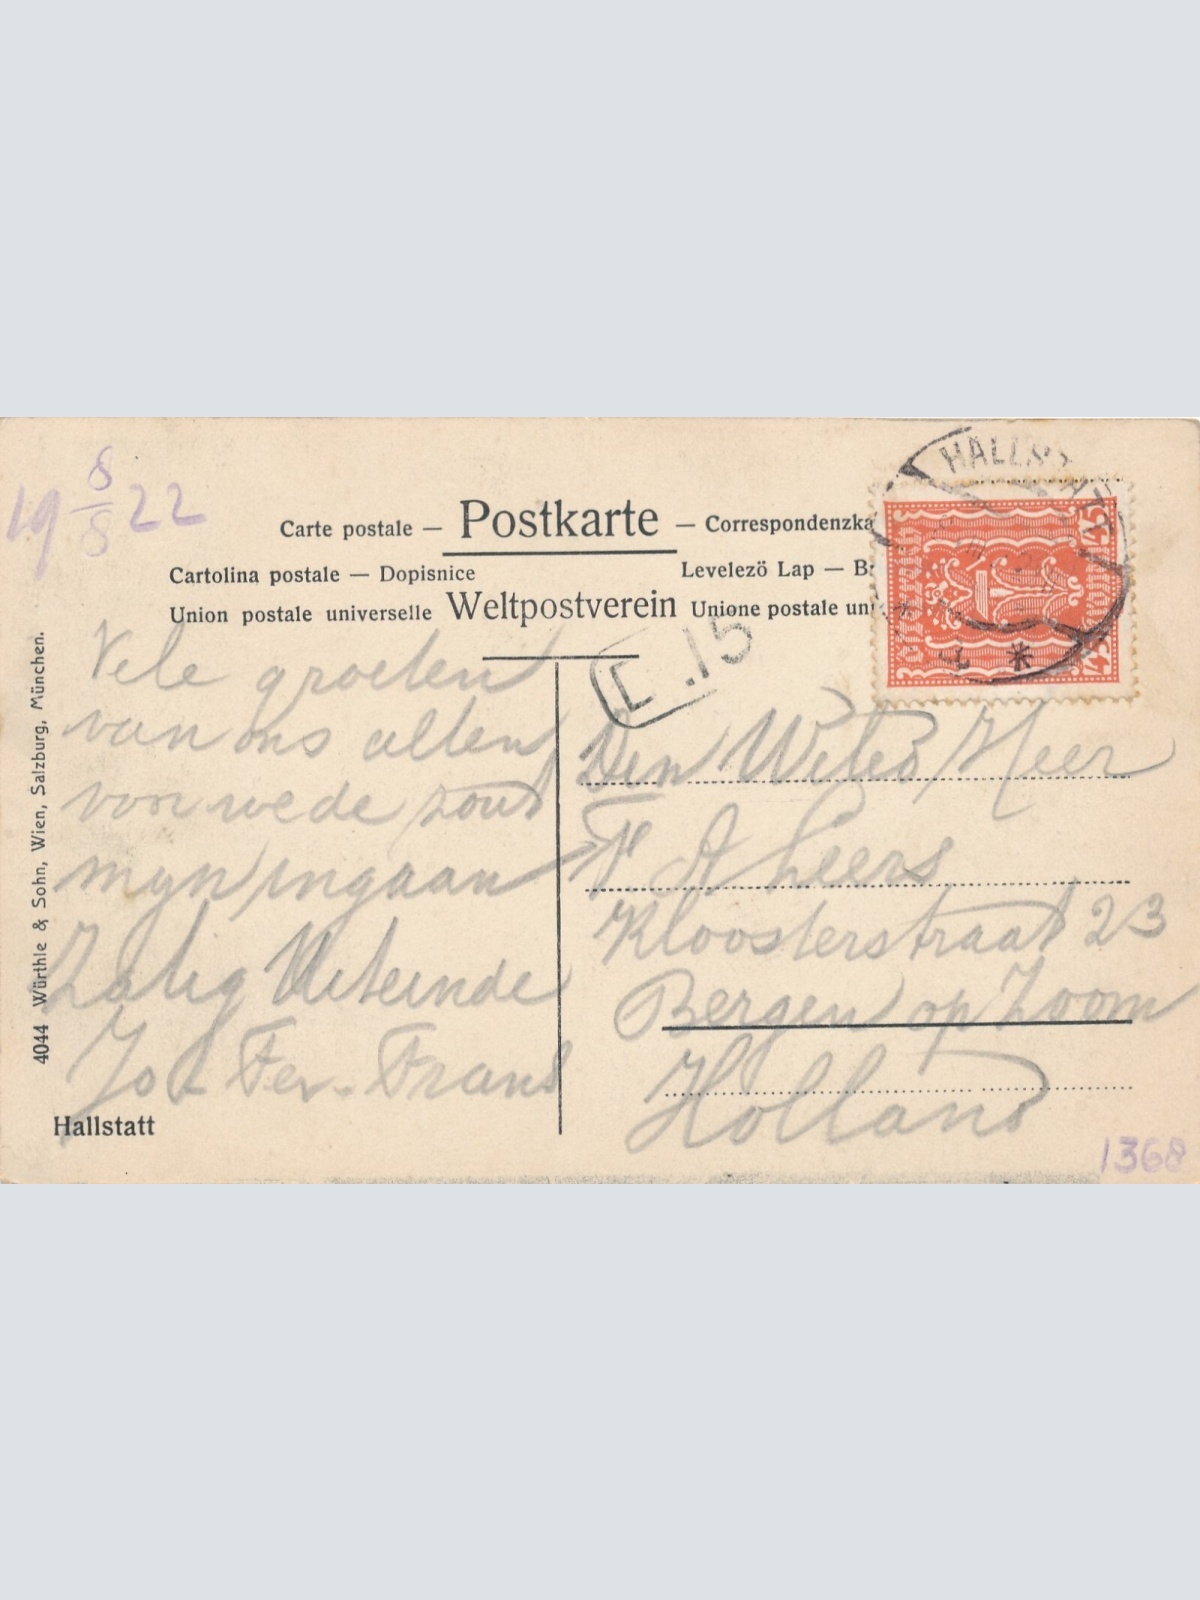 19 8/8 22
Carte postale — Postkarte — Correspondenzka
Cartolina postale — Dopisnice Levelezö Lap — B
Union postale universelle Weltpostverein Unione postale uni
HALLSTATT
45 45
L .15
Vele groeten
van ons allen
wede zout
myn ingaan
Zalig Uiteinde
Fer. Frans
Den Heer
A Leers
Kloosterstraat 23
Bergen op Zoom
Holland
4044 Würthle & Sohn, Wien, Salzburg, München.
Hallstatt
1368